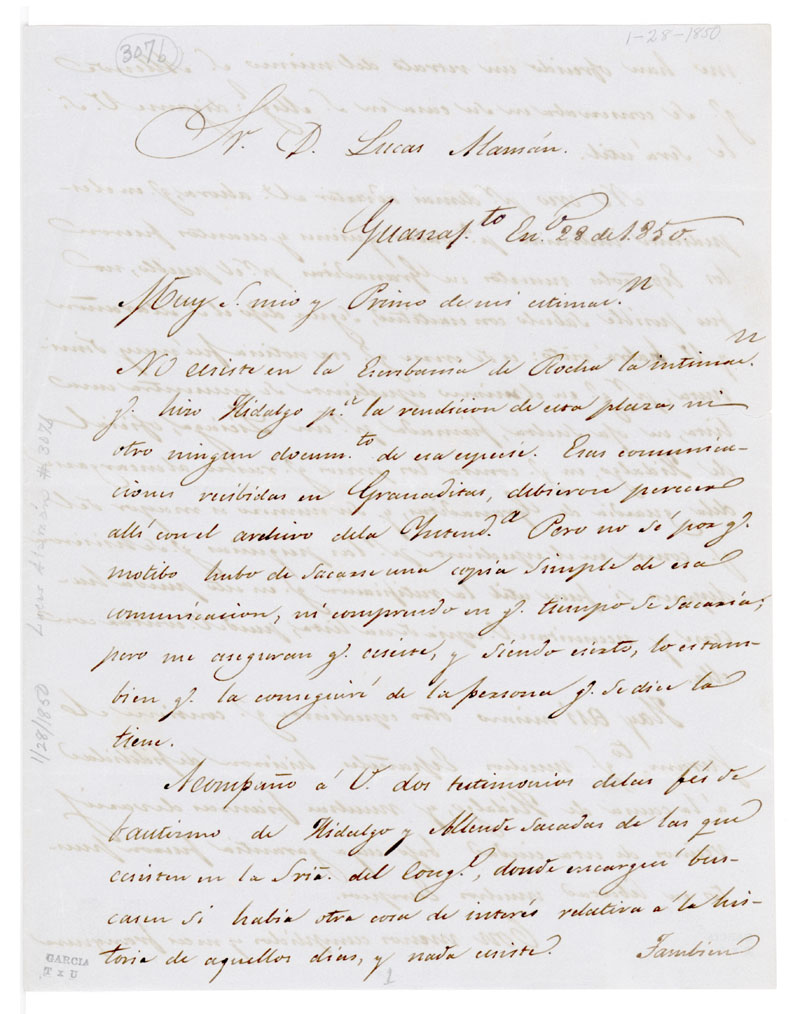 307b
1-28-1850
Sr. D. Lucas Alamán.
Guanaxto. Eno. 28 de 1850
Muy S. mio y Primo de mi estimacn.
No ecsiste en la Escribania de Rocha la intimacn.
q. hizo Hidalgo pa. la rendicion de esa plaza, ni
otro ningun documto. de esa especie. Esas comunica-
ciones recibidas en Granaditas, debieron perecer
alli con el archivo dela Yntenda. Pero no sé por q.
motibo hubo de sacarse una copia simple de esa
comunicacion, ni comprendo en q. tiempo se sacaria;
pero me aseguran q. ecsiste, y siendo cierto, lo es tam-
bien q. la conseguiré de la persona q. se dice la
tiene.
Acompaño á V. dos testimonios delas fés de
bautismo de Hidalgo y Allende sacadas de las que
ecsisten en la Sria. del Congo., donde encargué bus-
casen si había otra cosa de interés relativa a la his-
toria de aquellos dias, y nada ecsiste. Tambien
Lucas Alamán # 307b
1/28/1850
GARCIA
T x U
1